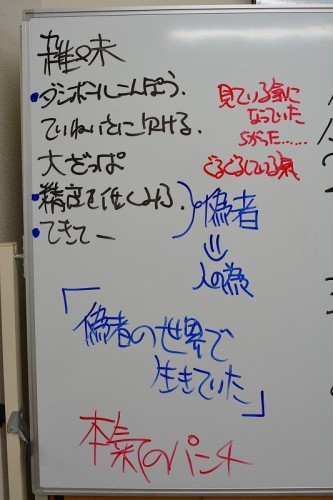 雑味
・ダンボールこんぽう.
ていねいさに欠ける.
大ざっぱ
・精度を低くみる.
・てきてー
見ている気に
なっていた
5がった……
ぐるぐるしている気
偽者
⇓
人の為
「偽者の世界で
生きていた」
本氣のパンチ